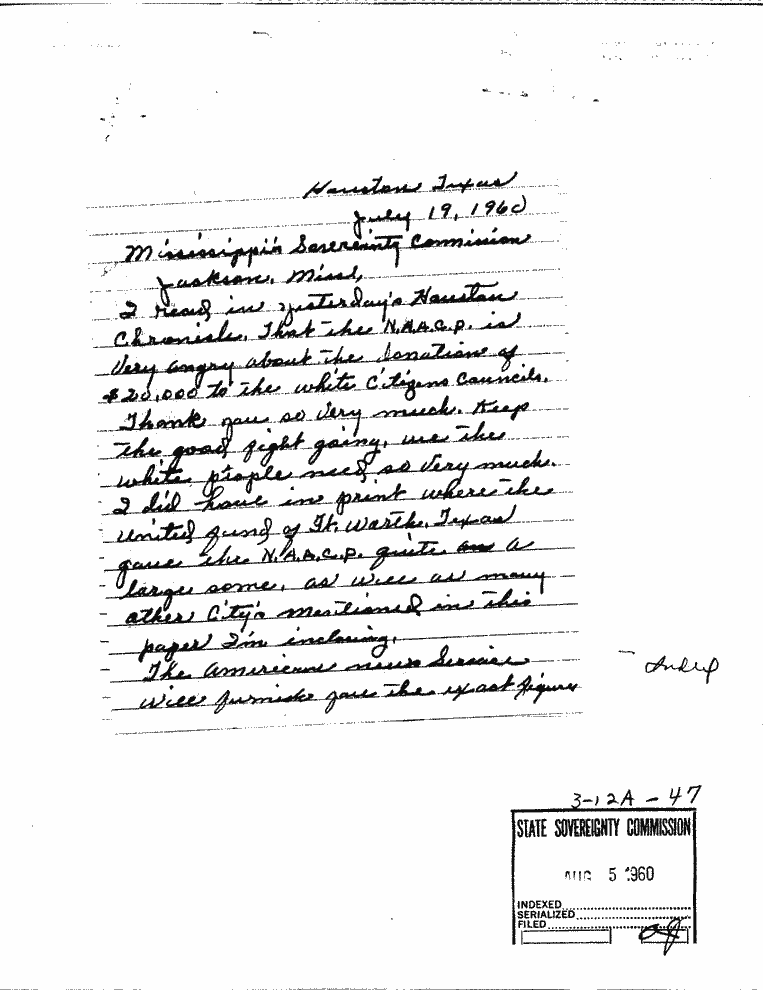 Houston Texas
July 19, 1960
Mississippi's Sovereinty Commision
Jackson, Miss,
I read in yesterday's Houston
Chronicle, That the N.A.A.C.P. is
Very angry about the donation of
$20,000 to the white Citizens Councils.
Thank you so Very much. Keep
the good fight going, we the
white people need so Very much.
I did have in print where the
United fund of Ft. Worth, Texas
gave the N.A.A.C.P. quite a
large some, as well as many
other City's mentioned in this
paper I'm inclosing.
The American news Service
will furnish you the exact figures
Index
3-12A-47
STATE SOVEREIGNTY COMMISSION
AUG 5 1960
INDEXED
SERIALIZED
FILED